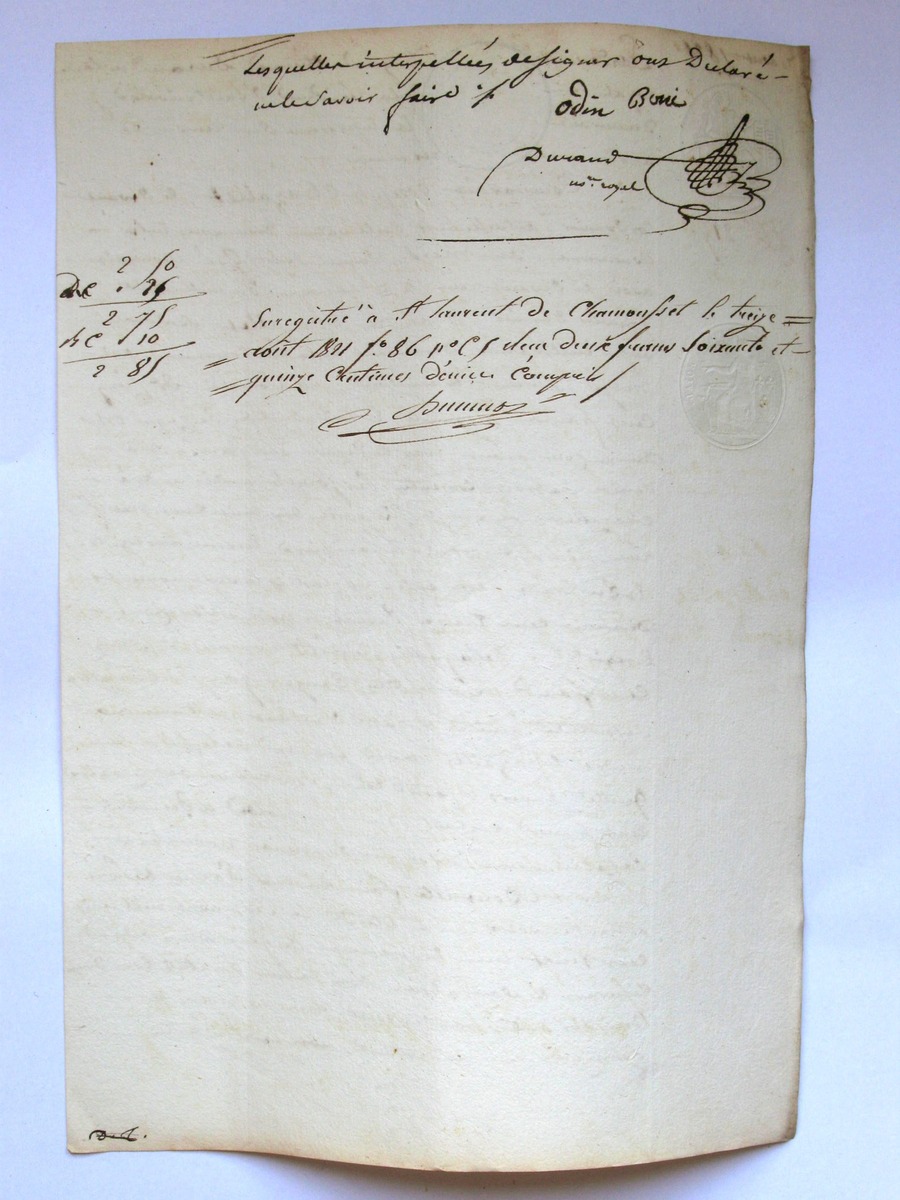 Lesquelles interpellées de signer ont Déclaré
ne le savoir faire ·/.
odin Boni
Durand
no.re royal
2 50
Dxe . 25
2 75
10
2 85
Enregistré à St laurent de Chamousset le treize
août 1821 f.o 86 r.o C 5 deux francs soixante et
quinze Centimes décime Compris
D.L.